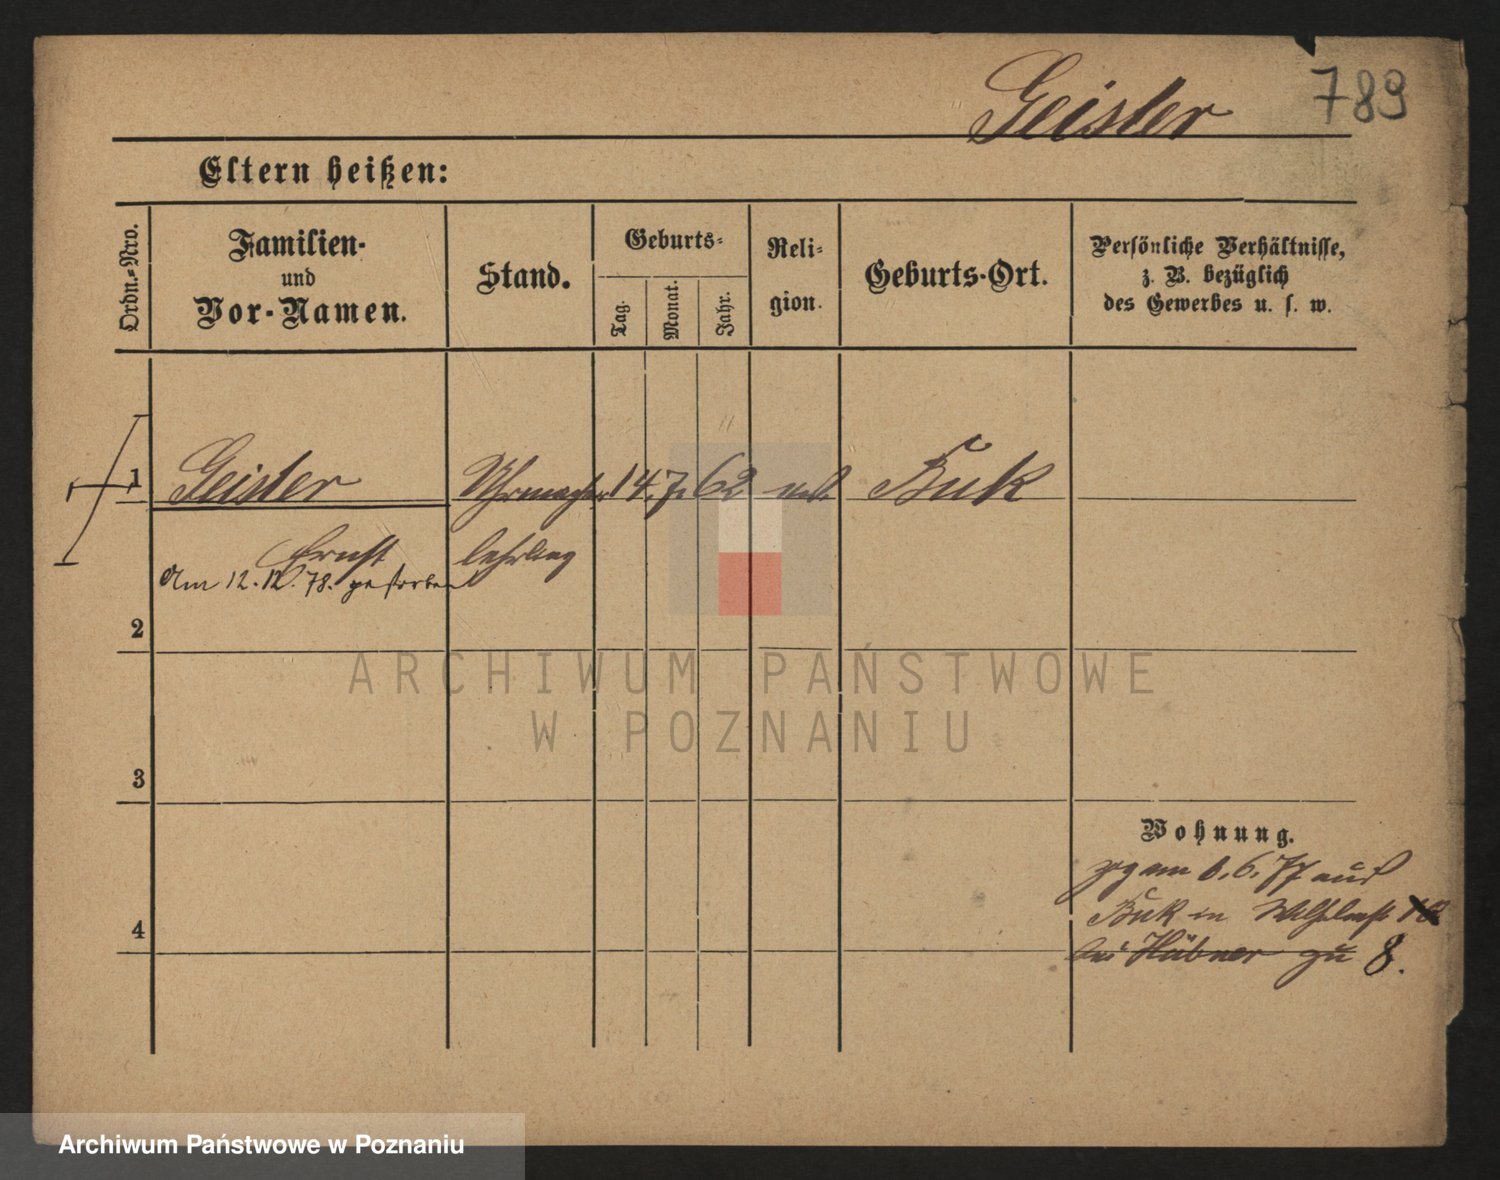 Geister
789
Eltern heißen:
Ordn.-Nro.
Familien-
und
Vor-Namen.
Stand.
Geburts-
Tag.
Monat.
Jahr.
Reli-
gion.
Geburts-Ort.
Persönliche Verhältnisse,
z. B. bezüglich
des Gewerbes u. s. w.
1
Geister
Uhrmacher
14. 7. 62
Buk
Ernst
lehrling
Am 12. 12. 78. gestorben
2
ARCHIWUM PAŃSTWOWE
W POZNANIU
3
Wohnung.
am 6. 6. 77 aus
Buk in Wilhelmst
4
bei Hübner zu 8.
Archiwum Państwowe w Poznaniu